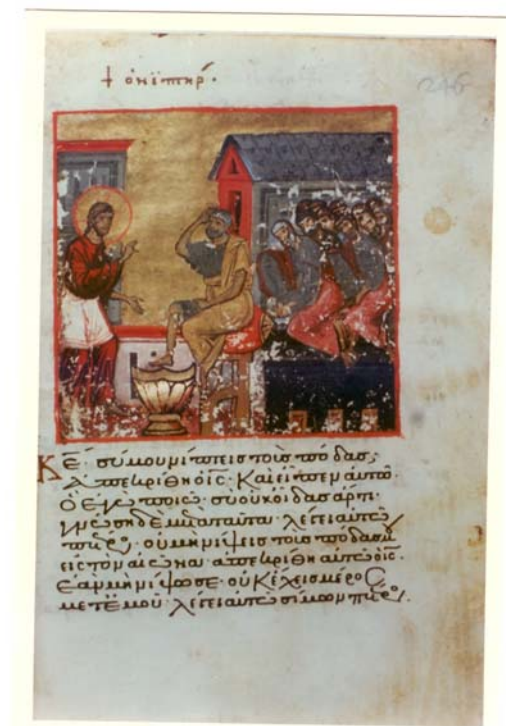 † ὁ νιπτηρ·
246
Κε· σύ μου νίπτεις τοὺς πόδας;
Ἀπεκρίθη ὁ ις· καὶ εἶπεν αὐτῶ·
Ὃ ἐγὼ ποιῶ· σὺ οὐκ οἶδας ἄρτι·
γνώση δὲ μετὰ ταῦτα· λέγει αὐτῶ
πετρο· οὐ μὴ νίψεις τοὺς πόδας μου
εἰς τὸν αἰῶνα· ἀπεκρίθη αὐτῶ ὁ ις·
Ἐὰν μὴ νίψω σε· οὐκ ἔχεις μέρος
μετ ἐμοῦ· λέγει αὐτῶ σίμων πετρο·